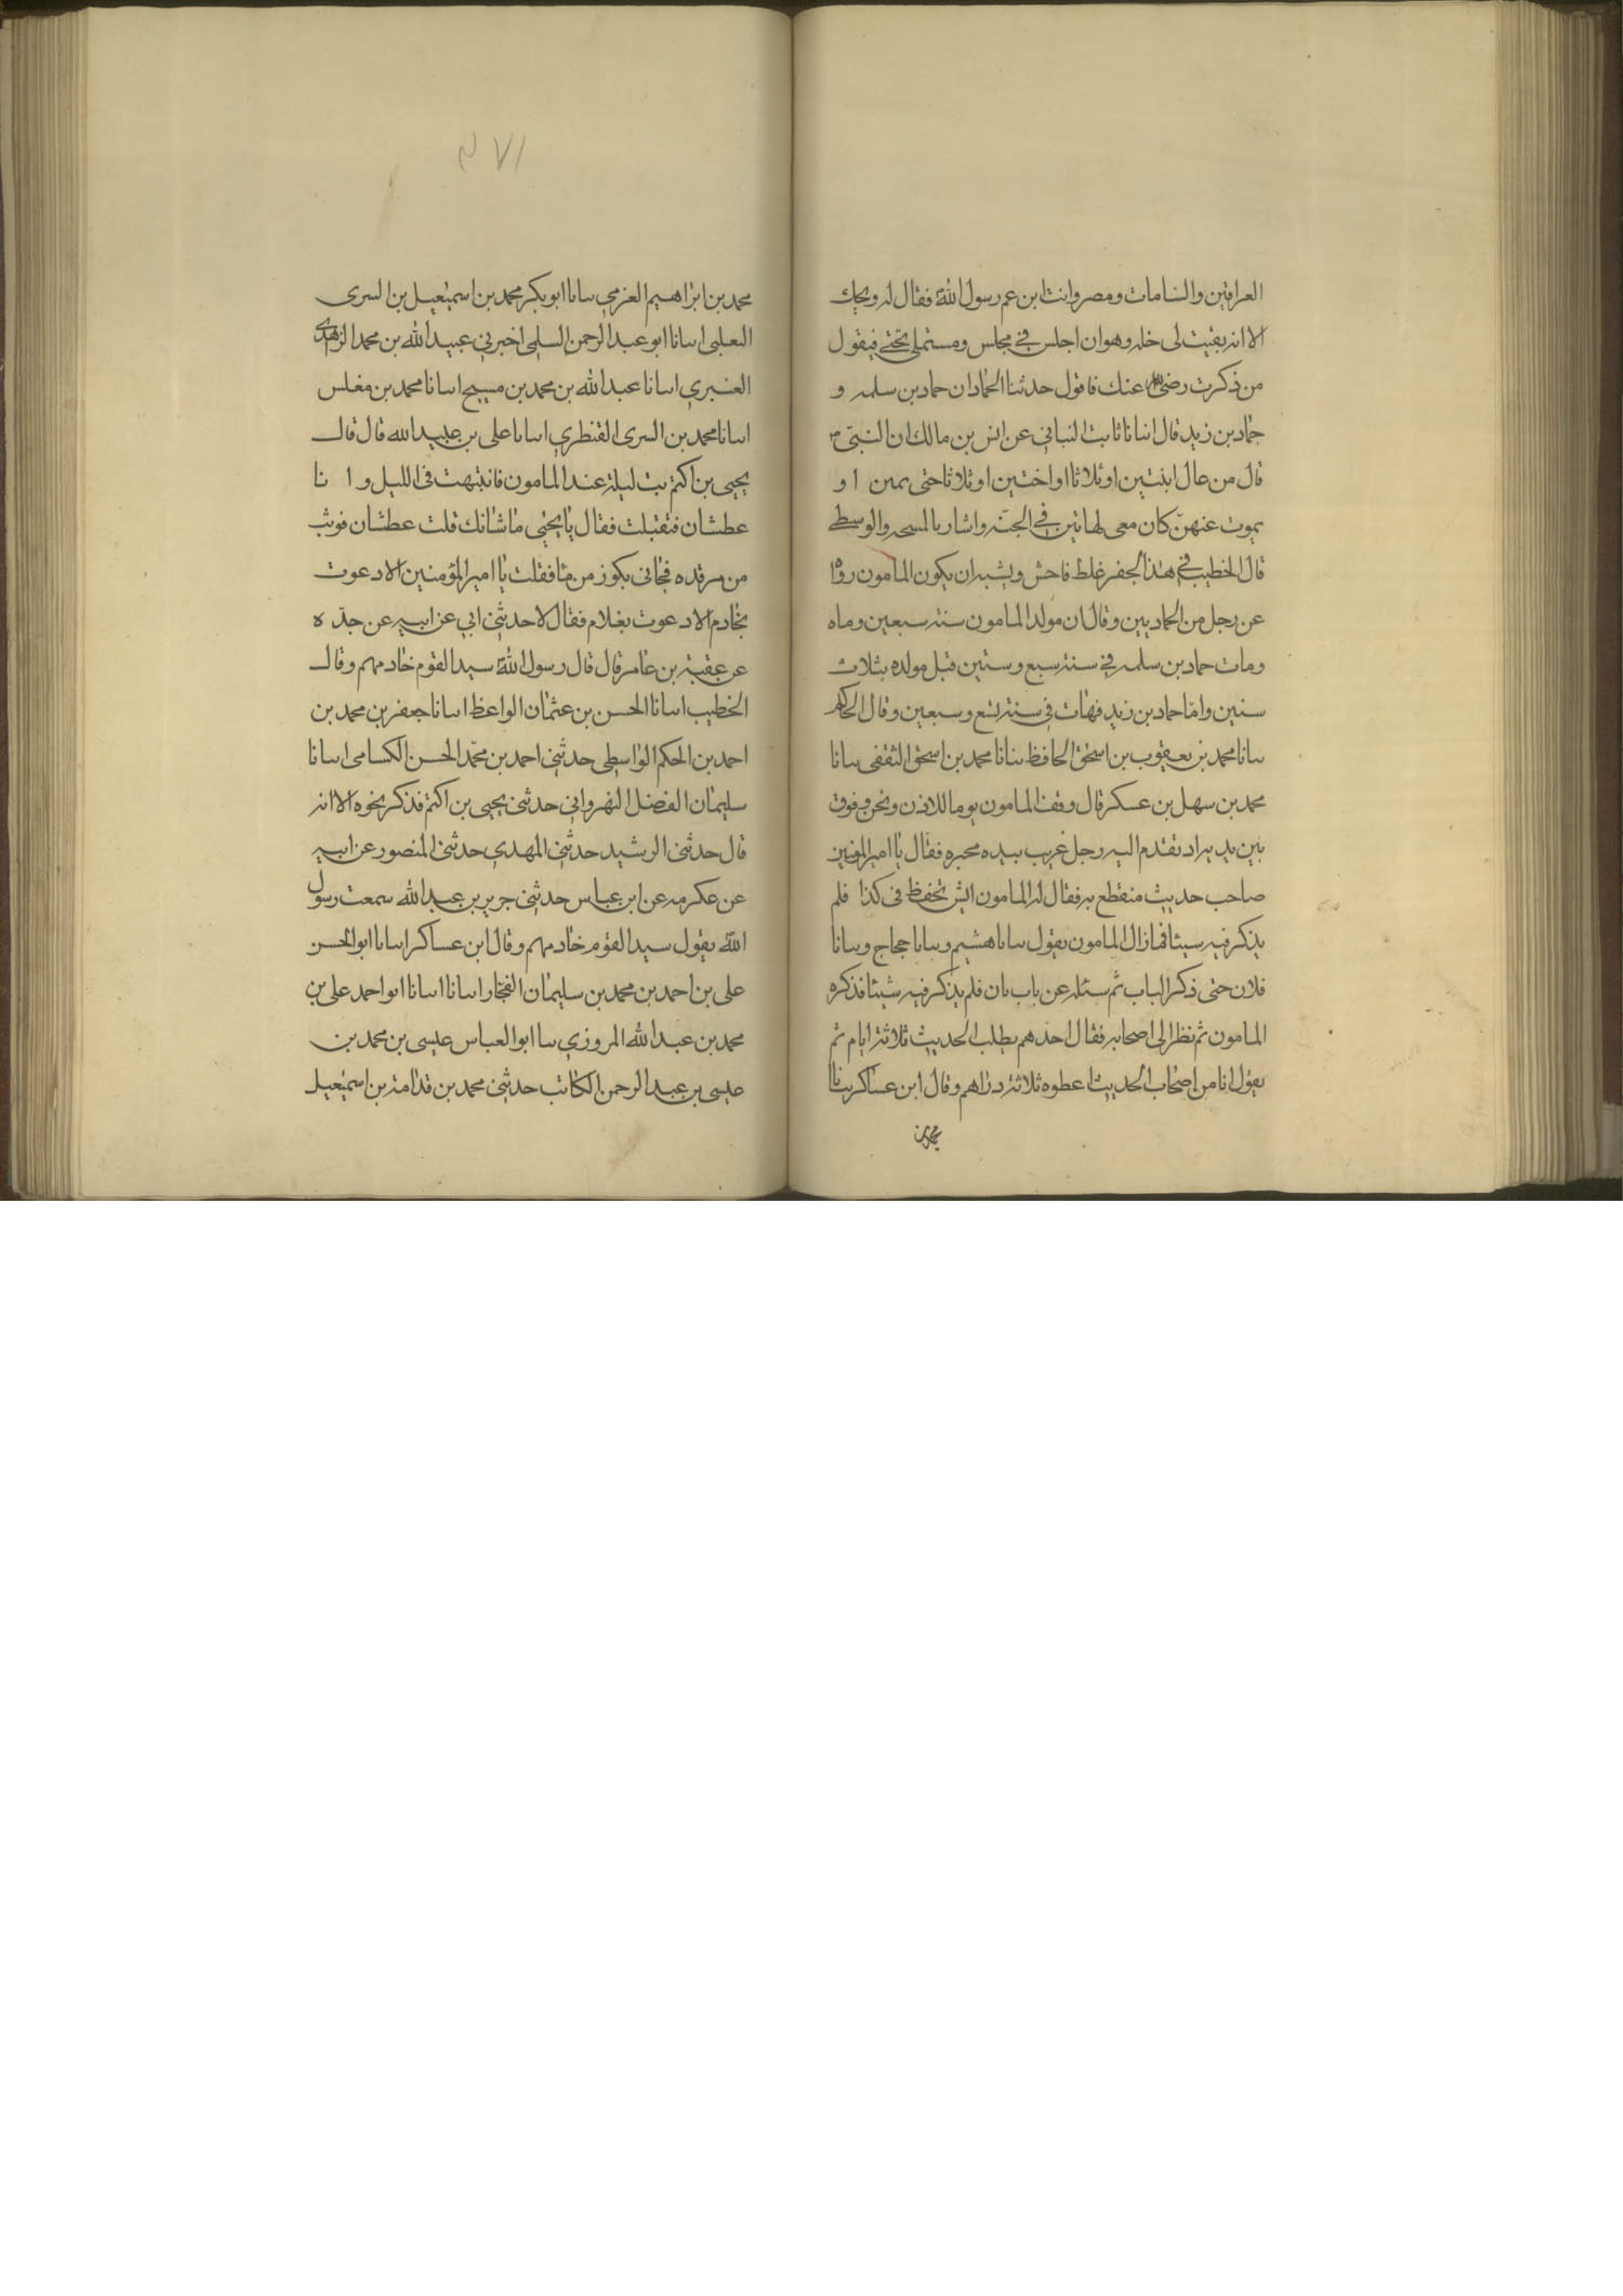 العراقين والشامات ومصر وانت ابن عم رسول الله فقال له ويحك
الا انه بقيت لى خله وهو ان اجلس في مجلس ومستملي تحتي فيقول
من ذكرت رضى الله عنك فاقول حدثنا الحمادان حماد بن سلمه و
حماد بن زيد قال انبانا ثابت البناني عن انس بن مالك ان النبيّ ص
قال من عال ابنتين او ثلاثا او اختين او ثلاثا حتى يمتن ا و
يموت عنهنّ كان معى كهاتين في الجنّه واشار بالمسبحه والوسطى
قال الخطيب في هذا الخبر غلط فاحش ويشبه ان يكون المامون رواه
عن رجل من الحمادين وقال ان مولد المامون سنة سبعين وماه
ومات حماد بن سلمه في سنة سبع وستين قبل مولده بثلاث
سنين وامّا حماد بن زيد فمات في سنة تسع وسبعين وقال الحاكم
بنانا محمد بن يعقوب بن اسحق الحافظ بنانا محمد بن اسحق الثقفى بنانا
محمد بن سهل بن عسكر قال وقف المامون يوما للاذن ونحن وقوف
بين يديه اذ تقدم اليه رجل غريب بيده محبره فقال يا امير المومنين
صاحب حديث منقطع به فقال له المامون ايش تحفظ فى كذا فلم
يذكر فيه شيئا فما زال المامون يقول بنانا هشيم وبنانا حجاج وبنانا
فلان حتى ذكر الباب ثم سئله عن باب ثان فلم يذكر فيه شيئا فذكره
المامون ثم نظر الى اصحابه فقال احدهم يطلب الحديث ثلاثة ايام ثم
يقول انا من اصحاب الحديث اعطوه ثلاثة دراهم وقال ابن عساكر بنانا
محمد بن
٣٧١
محمد بن ابراهيم الغزمي بنانا ابو بكر محمد بن اسمعيل بن السرى
التعلبى انبانا ابو عبد الرحمن السلمى اخبرني عبيد الله بن محمد الزهدى
العنبري انبانا عبد الله بن محمد بن مسيح انبانا محمد بن مغلس
انبانا محمد بن السرى القنطري انبانا على بن عبيد الله قال قال
يحيى بن اكثم بت ليلة عند المامون فانتبهت فى الليل و ا نا
عطشان فتقبلت فقال يا يحيى ما شانك قلت عطشان فوثب
من مرقده فجانى بكوز من ما فقلت يا امير المؤمنين الا دعوت
بخادم الا دعوت بغلام فقال لا حدثني ابي عن ابيه عن جدّه
عن عقبة بن عامر قال قال رسول الله سيد القوم خادمهم وقال
الخطيب انبانا الحسن بن عثمان الواعظ انبانا جعفر بن محمد بن
احمد بن الحكم الواسطى حدثني احمد بن محمد الحسن الكسامى انبانا
سليمان الفضل النهرواني حدثنى يحيى بن اكثم فذكر نحوه الا انه
قال حدثنى الرشيد حدثني المهدي حدثنى المنصور عن ابيه
عن عكرمه عن ابن عباس حدثني جرير بن عبد الله سمعت رسول
الله يقول سيد القوم خادمهم وقال ابن عساكر انبانا ابو الحسن
على بن احمد بن محمد بن سليمان الفخار انبانا انبانا ابو احمد على بن
محمد بن عبد الله المروزي بنا ابو العباس عيسى بن محمد بن
عيسى بن عبد الرحمن الكاتب حدثني محمد بن قدامة بن اسمعيل